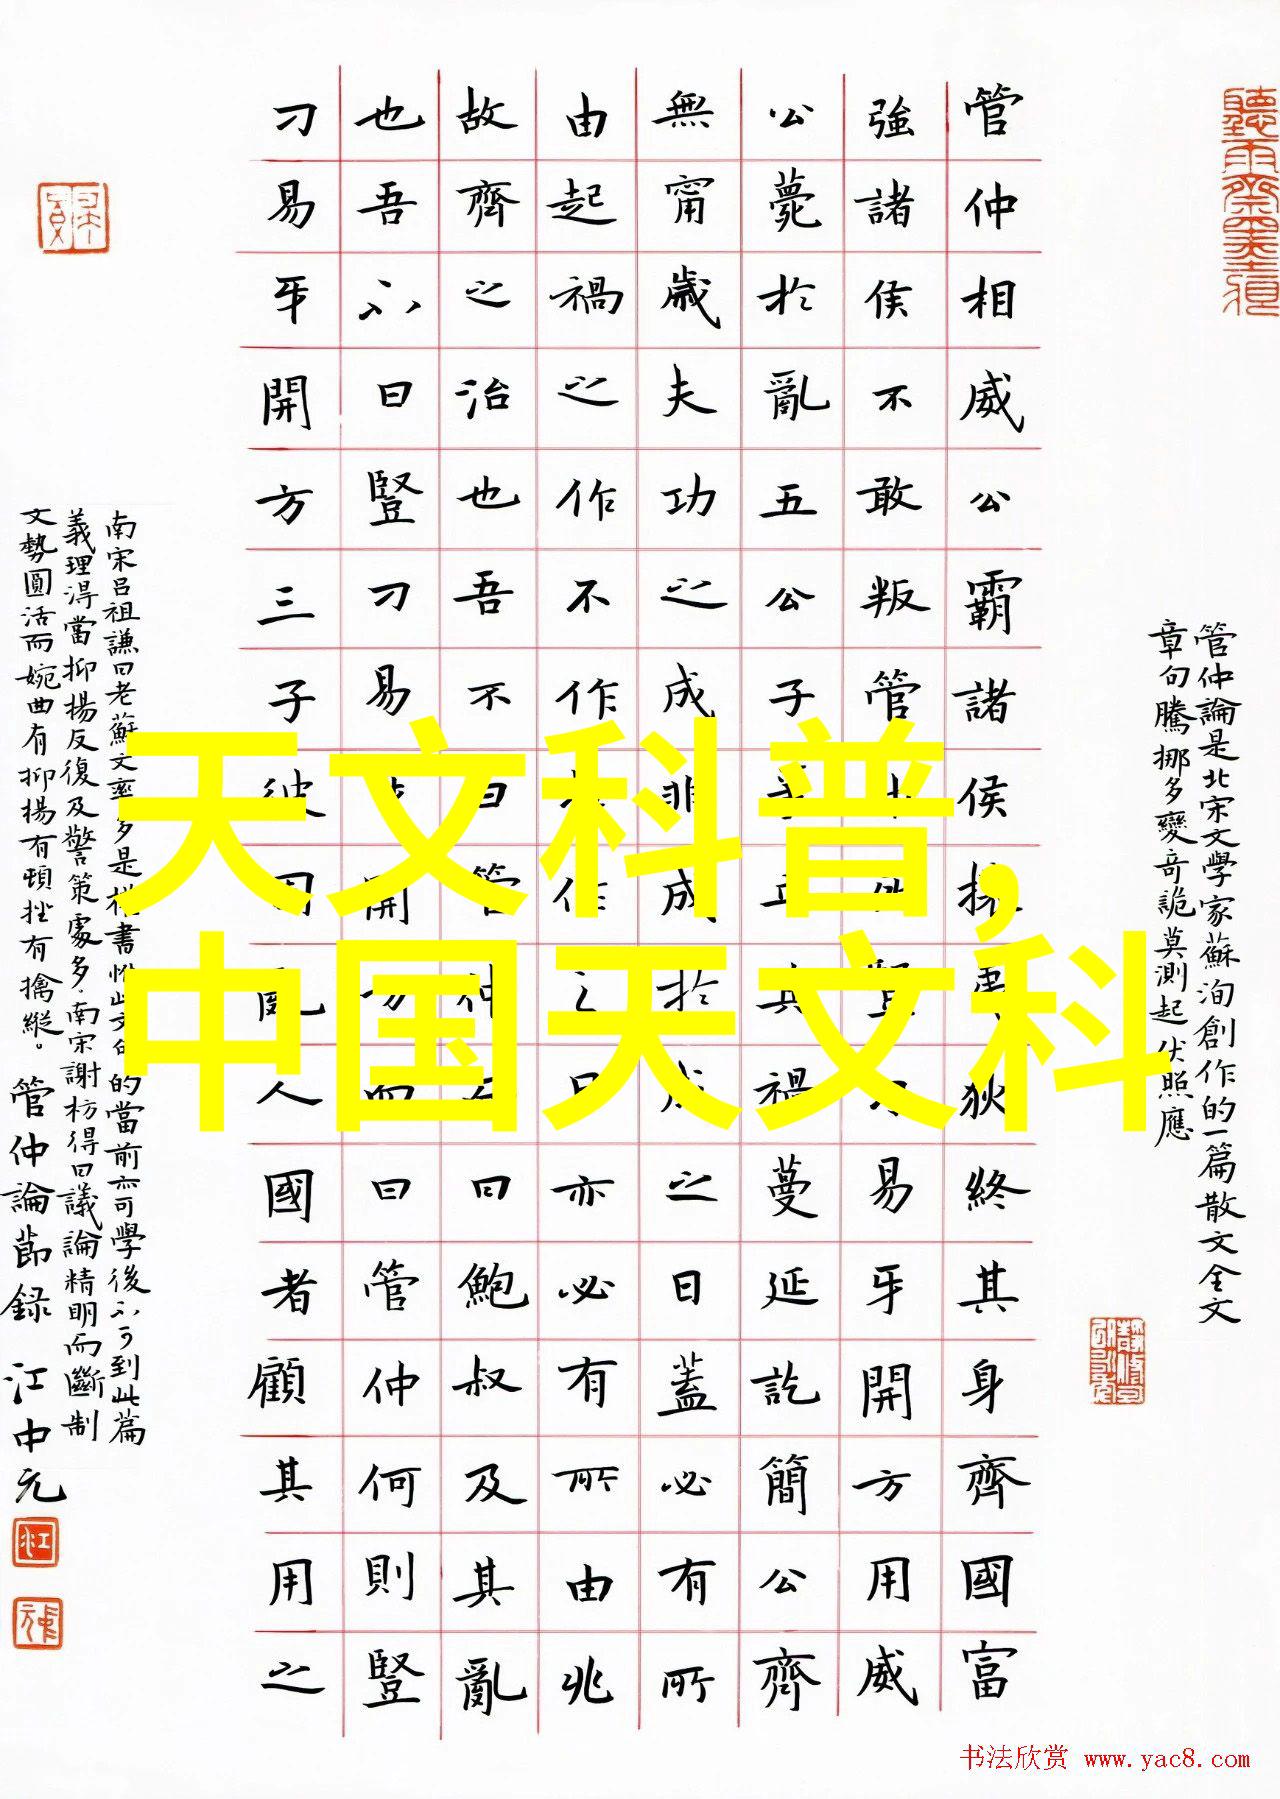 天文科普,
中国天文科
管仲論是北宋文學家蘇洵創作的一篇散文全文
章句騰挪多變奇詭莫測起伏照應
管仲相威公霸諸侯攘夷狄終其身齊國富
強諸侯不敢叛管仲死豎刁易牙開方用威
公薨於亂五公子爭立其禍蔓延訖簡公齊
無甯歲夫功之成非成於成之日蓋必有所
由起禍之作不作於作之日亦必有所由兆
故齊之治也吾不曰管仲而曰鮑叔及其亂
也吾不曰豎刁易牙開方而曰管仲何則豎
刁易牙開方三子彼固亂人國者顧其用之
南宋呂祖謙曰老蘇文率多是權書惟此文句的當前亦可學後不可到此篇
義理淂當抑揚反復及警策處多。南宋謝枋得曰議論精明而斷制
文勢圓活而婉曲有抑揚有頓挫有擒縱。管仲論節録 江中元
书法欣赏 www.yac8.com